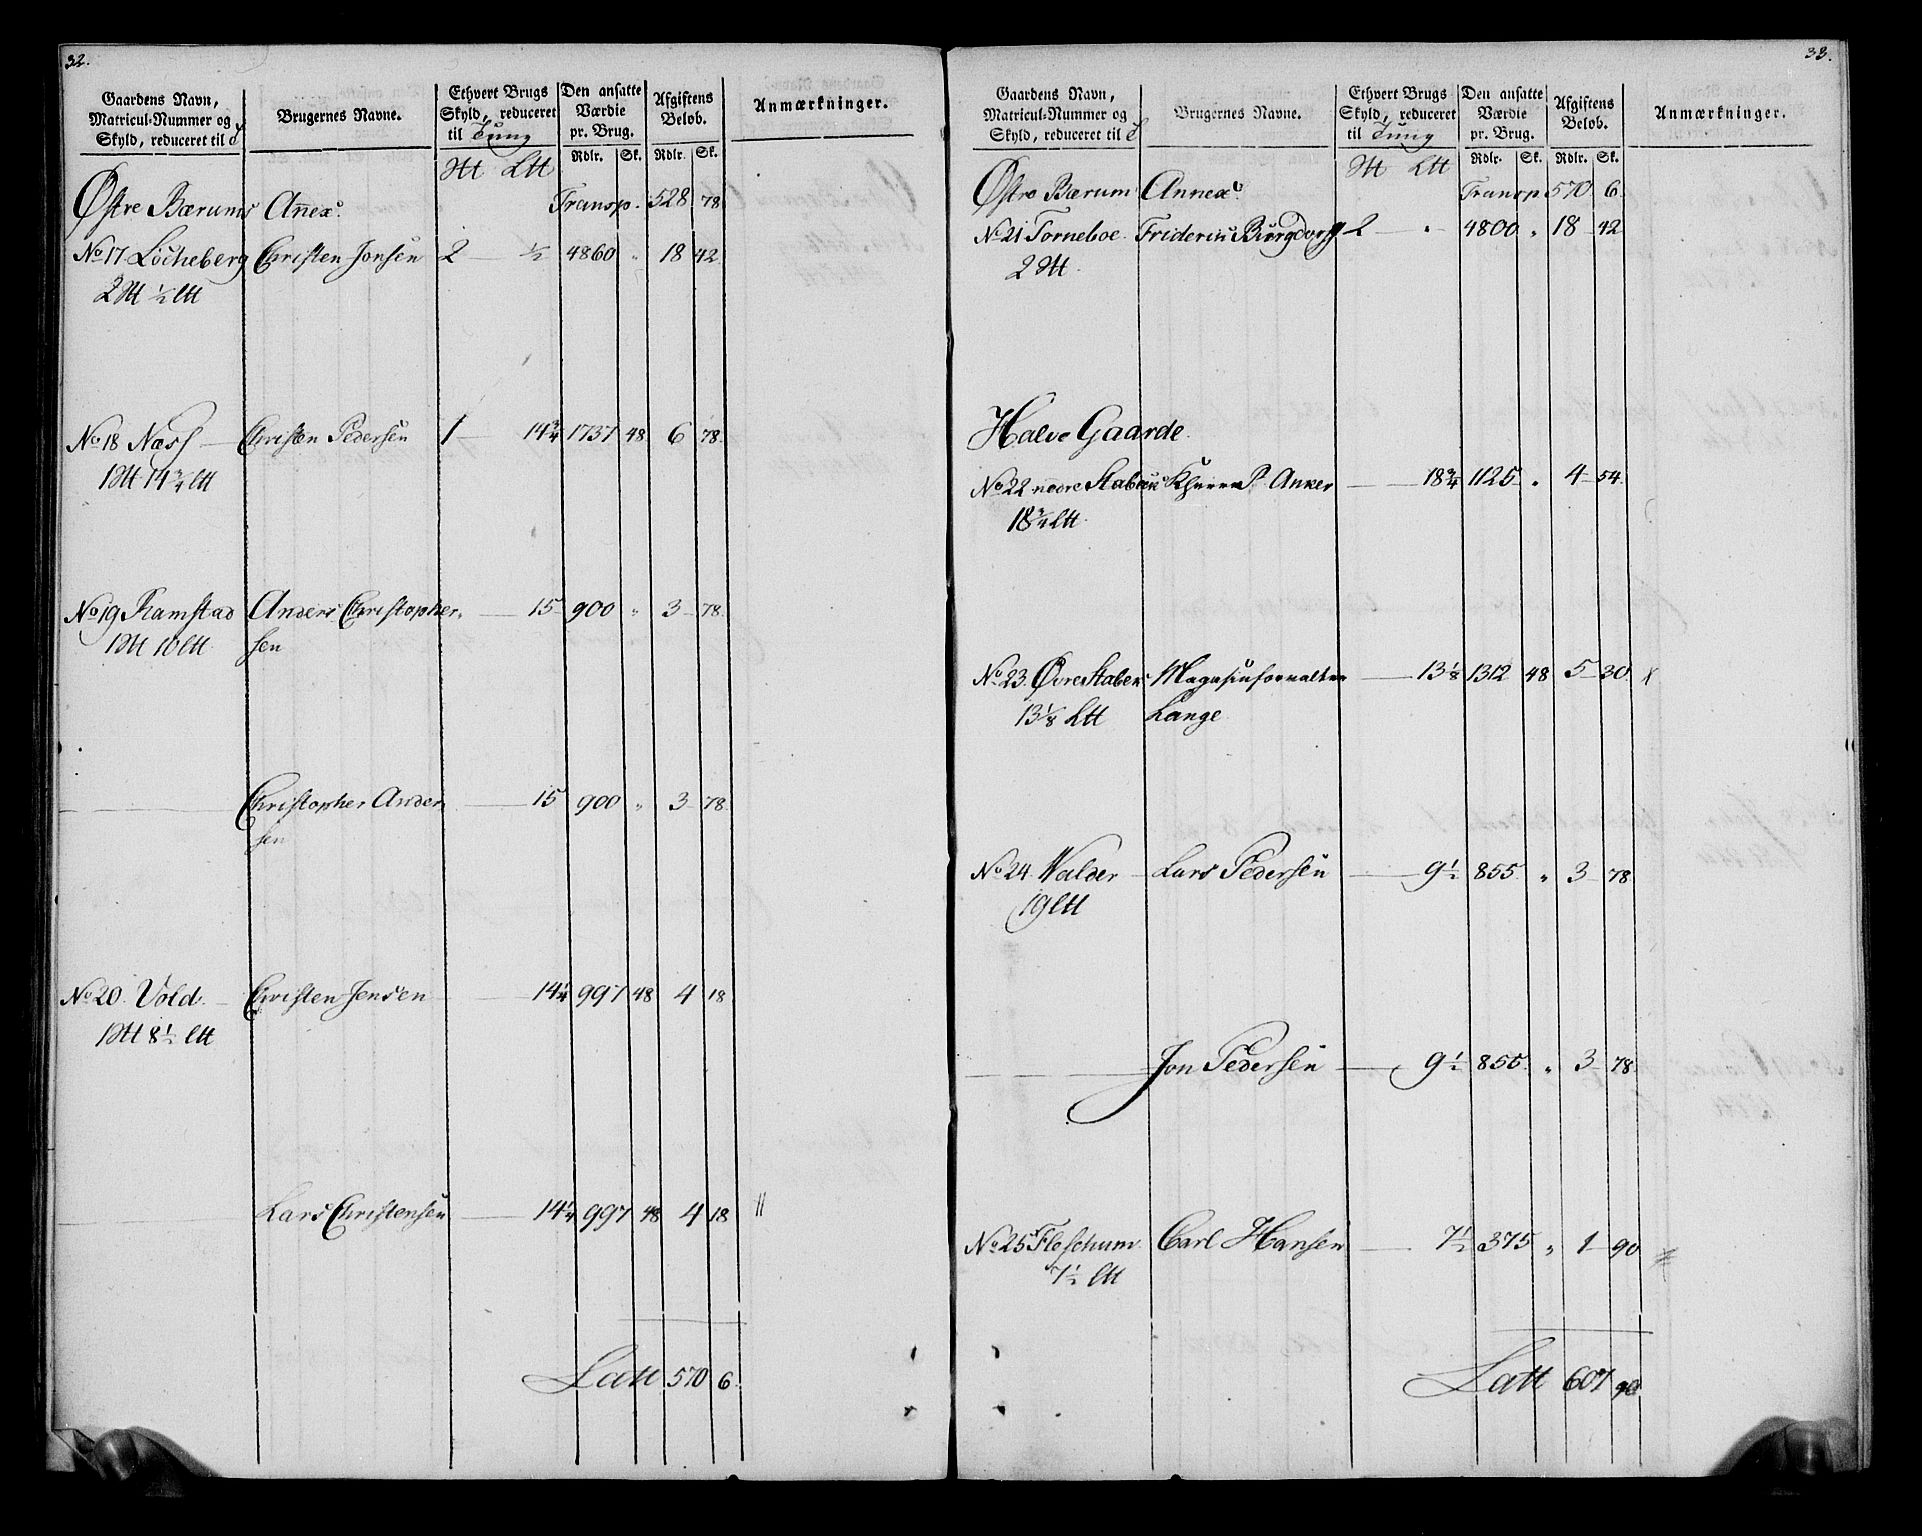 32.
Gaardens Navn, Matricul-Nummer og Skyld, reduceret til
Brugernes Navne.
Ethvert Brugs Skyld, reduceret til Tung
Den ansatte Værdie pr. Brug.
Afgiftens Beløb.
Anmærkninger.
Rdlr. Sk. Rdlr. Sk.
Østre Bærums Annex. Transp. 528 78
No 17 Løcheberg Christen Jonsen 2 — ½ 4860 " 18 42
2 ½
No 18 Næss — Christen Pedersen 1 — 14¾ 1737 48 6 78
1 14¾
No 19 Ramstad Anders Christopher- — 15 900 " 3 78
1 10 sen
Christopher Ander — 15 900 " 3 78
sen
No 20. Vold. — Christen Jensen — 14¼ 997 48 4 18
1 8½
Lars Christensen — 14¼ 997 48 4 18 //
Latt 570 6
33.
Gaardens Navn, Matricul-Nummer og Skyld, reduceret til
Brugernes Navne.
Ethvert Brugs Skyld, reduceret til Tung
Den ansatte Værdie pr. Brug.
Afgiftens Beløb.
Anmærkninger.
Rdlr. Sk. Rdlr. Sk.
Østre Bærum Annex. Transp 570 6
No 21 Torneboe. Friderik Burgdorg 2 — " 4800 " 18 42
2
Halve Gaarde.
No 22 nedre Stabek P. Anker — 18¾ 1125 " 4 54
18¾
No 23. Øvre Stabek Magasinforvalter — 13⅛ 1312 48 5 30 x
13⅛ Lange
No 24. Walder — Lars Pedersen — 9½ 855 " 3 78
19
Jon Pedersen — 9½ 855 " 3 78
No 25 Fleschum Carl Hansen — 7½ 375 " 1 90
7½
Latt 607 90